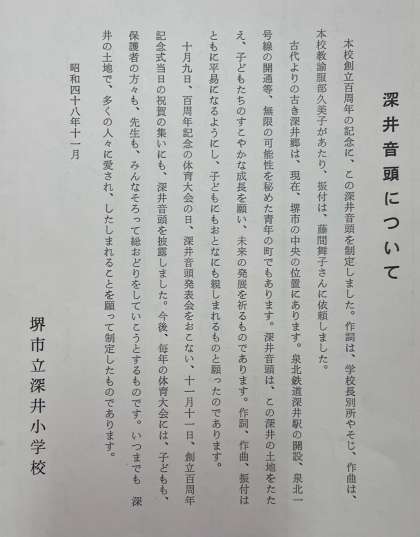 深井音頭について
本校創立百周年の記念に、この深井音頭を制定しました。作詞は、学校長別所やそじ、作曲は、
本校教諭服部久美子があたり、振付は、藤間舞子さんに依頼しました。
古代よりの古き深井郷は、現在、堺市の中央の位置にあります。泉北鉄道深井駅の開設、泉北一
号線の開通等、無限の可能性を秘めた青年の町でもあります。深井音頭は、この深井の土地をたた
え、子どもたちのすこやかな成長を願い、未来の発展を祈るものであります。作詞、作曲、振付は
ともに平易になるようにし、子どもにもおとなにも親しまれるものと願ったのであります。
十月九日、百周年記念の体育大会の日、深井音頭発表会をおこない、十一月十一日、創立百周年
記念式当日の祝賀の集いにも、深井音頭を披露しました。今後、毎年の体育大会には、子どもも、
保護者の方々も、先生も、みんなそろって総おどりをしていこうとするものです。いつまでも 深
井の土地で、多くの人々に愛され、したしまれることを願って制定したものであります。
昭和四十八年十一月
堺市立深井小学校